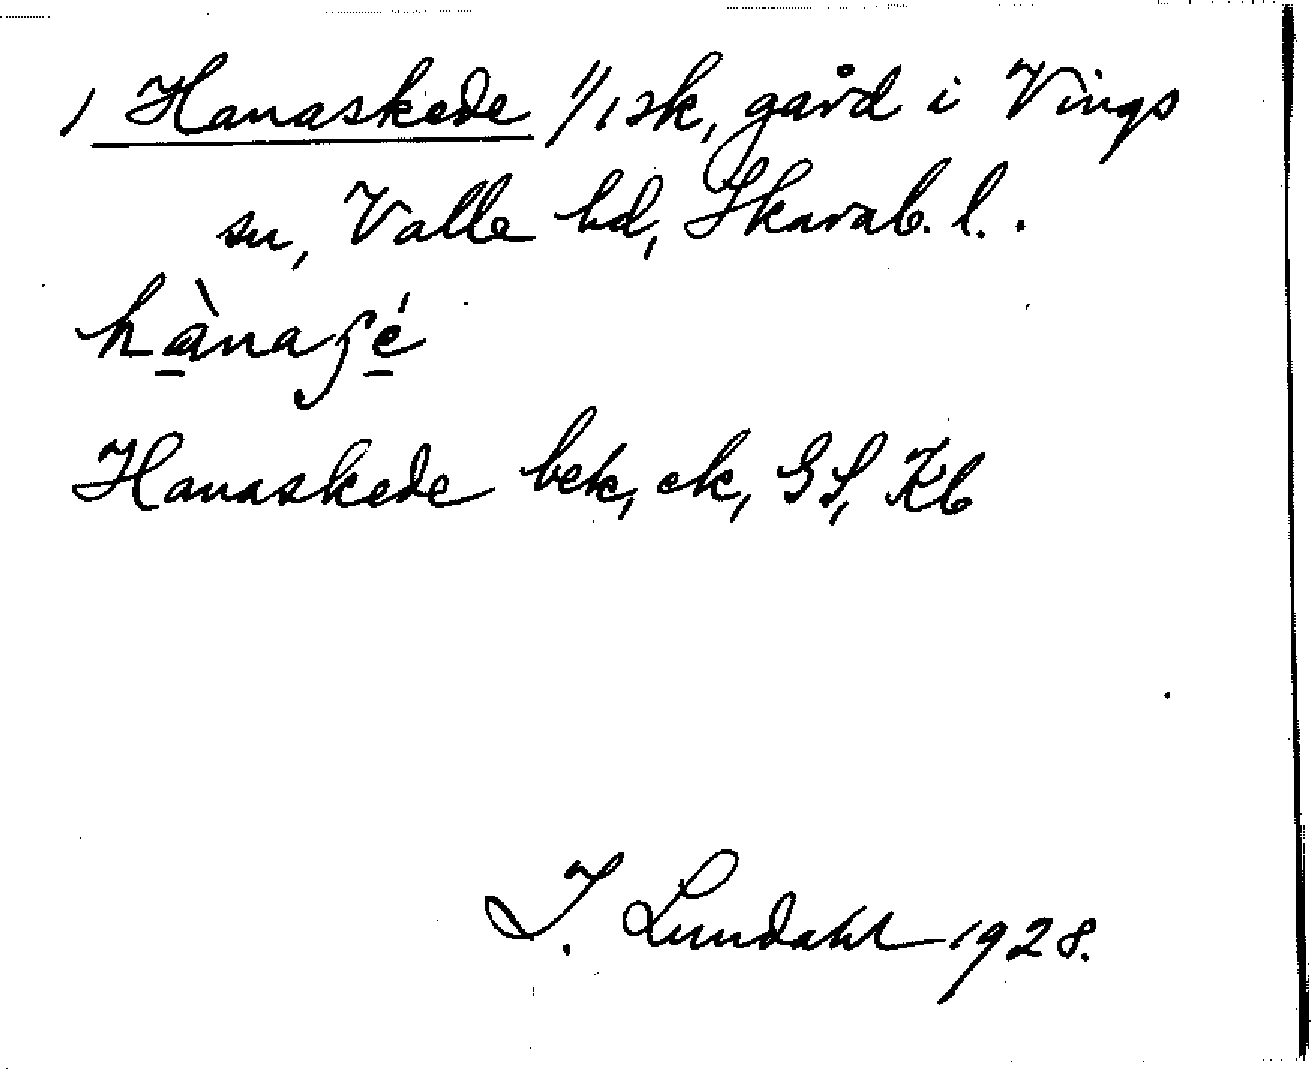 1 Hanaskede 1/1 sk, gård i Vings
sn, Valle hd, Skarab. l.
hànaʃé
Hanaskede bek, ek, GS, Kb
I. Lundahl 1928.